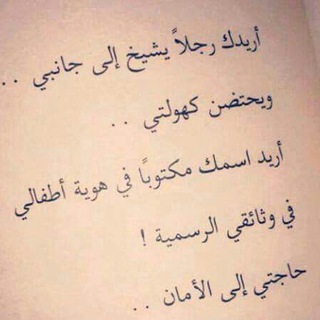 أريدك رجلاً يشيخ إلى جانبي . .
ويحتضن كهولتي . .
أريد اسمك مكتوبًا في هوية أطفالي
في وثائقي الرسمية !
حاجتي إلى الأمان . .